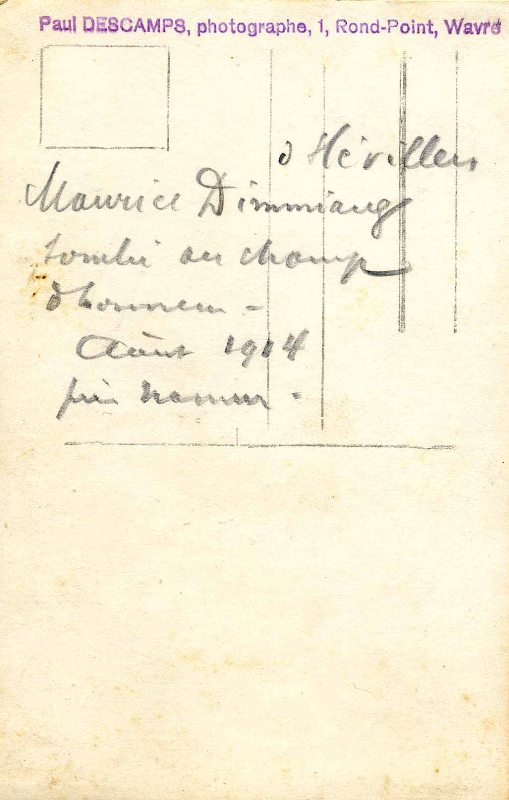 Paul DESCAMPS, photographe, 1, Rond-Point, Wavre
d Hévillers
Maurice Dimmiaug
tombé au champ
d honneur -
Août 1914
près Namur -